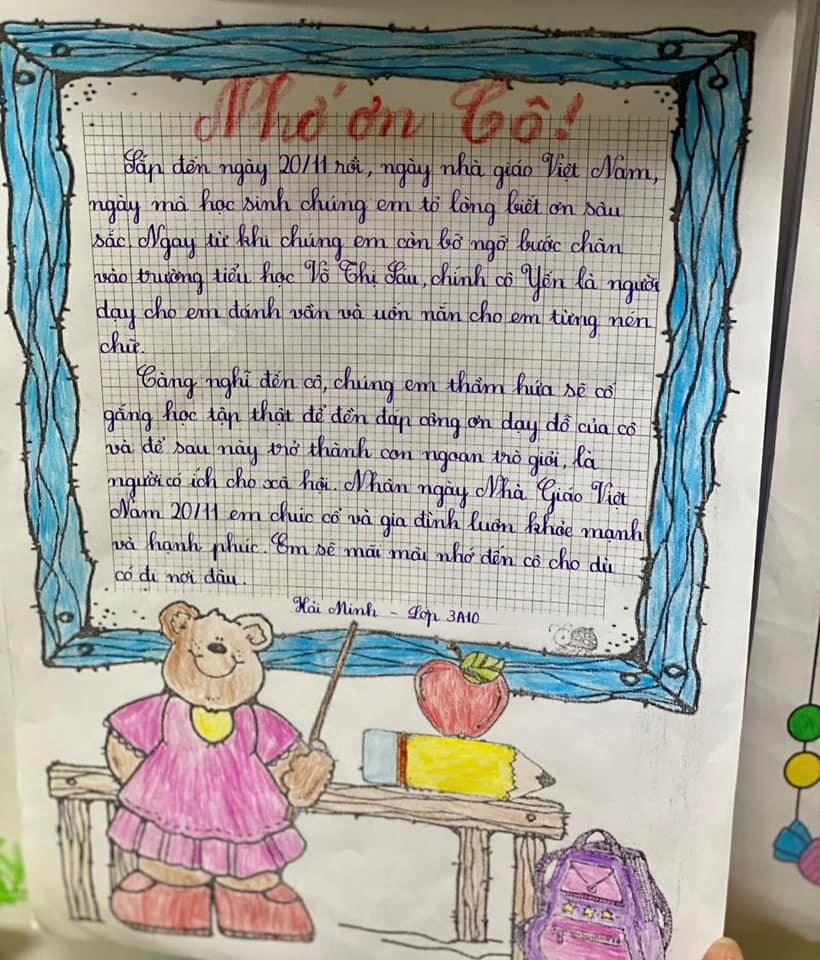 Nhớ ơn Cô!
Sắp đến ngày 20/11 rồi, ngày nhà giáo Việt Nam,
ngày mà học sinh chúng em tỏ lòng biết ơn sâu
sắc. Ngay từ khi chúng em còn bỡ ngỡ bước chân
vào trường tiểu học Võ Thị Sáu, chính cô Yến là người
dạy cho em đánh vần và uốn nắn cho em từng nén
chữ.
Càng nghĩ đến cô, chúng em thầm hứa sẽ cố
gắng học tập thật để đền đáp công ơn dạy dỗ của cô
và để sau này trở thành con ngoan trò giỏi, là
người có ích cho xã hội. Nhân ngày Nhà Giáo Việt
Nam 20/11 em chúc cô và gia đình luôn khỏe mạnh
và hạnh phúc. Em sẽ mãi mãi nhớ đến cô cho dù
có đi nơi đâu.
Hải Minh - Lớp 3A10